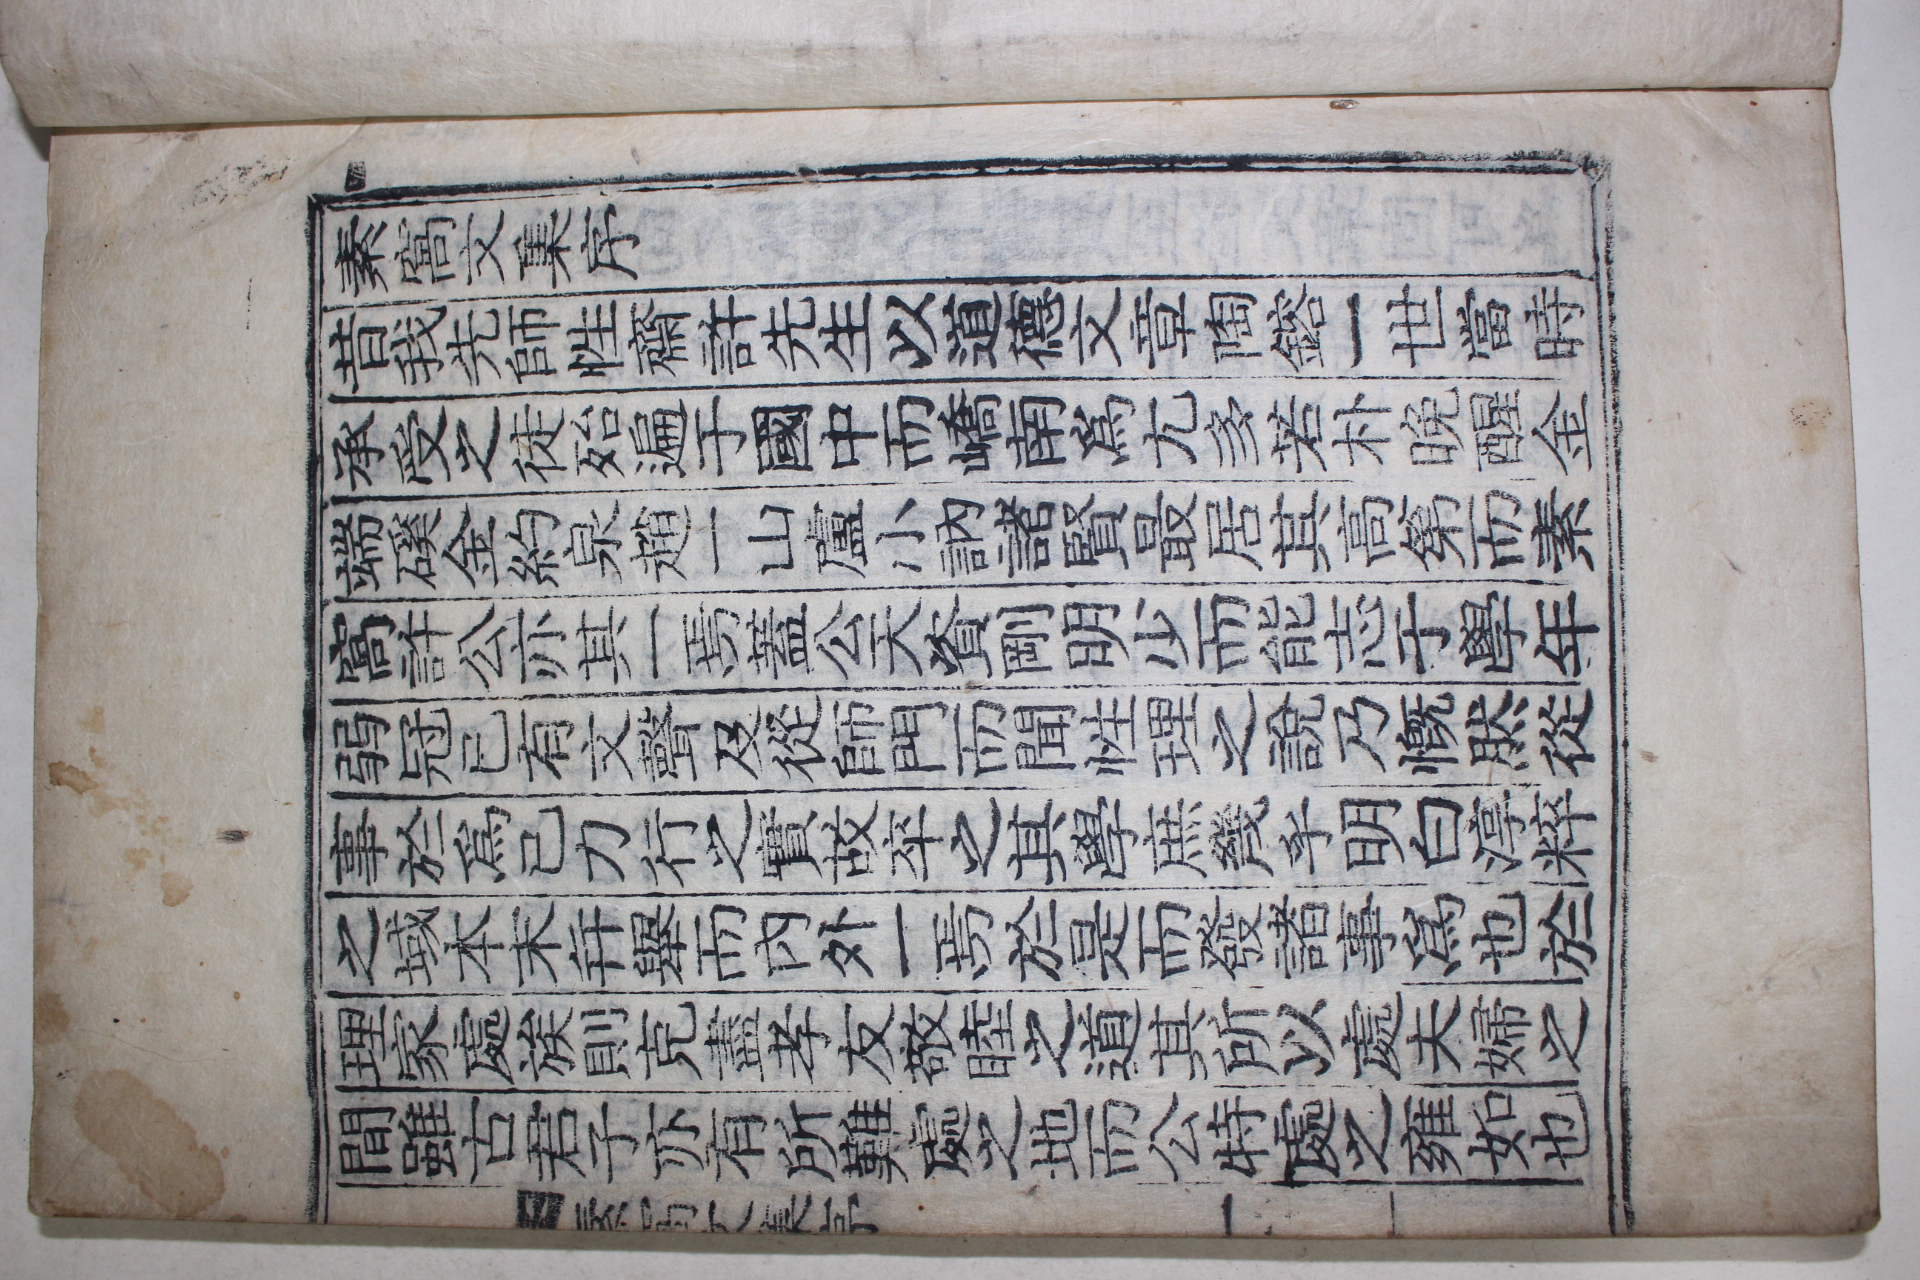 素窩文集序
昔我先師性齋許先生以道德文章陶鎔一世當時
承受之徒殆遍于國中而嶠南爲尤多若朴晩醒金
端磎金約泉趙一山盧小訥諸賢最居其高第而素
窩許公亦其一焉蓋公天資剛明少而能志于學年
弱冠已有文聲及從師門而聞性理之說乃慨然從
事於爲己力行之實故卒之其學庶幾乎明白淳粹
之域本末幷擧而內外一焉於是而發諸事爲也於
理家處族則克盡孝友敬睦之道其所以處夫婦之
間雖古君子亦有所難處之地而公特處之雍如也
素窩文集序 一